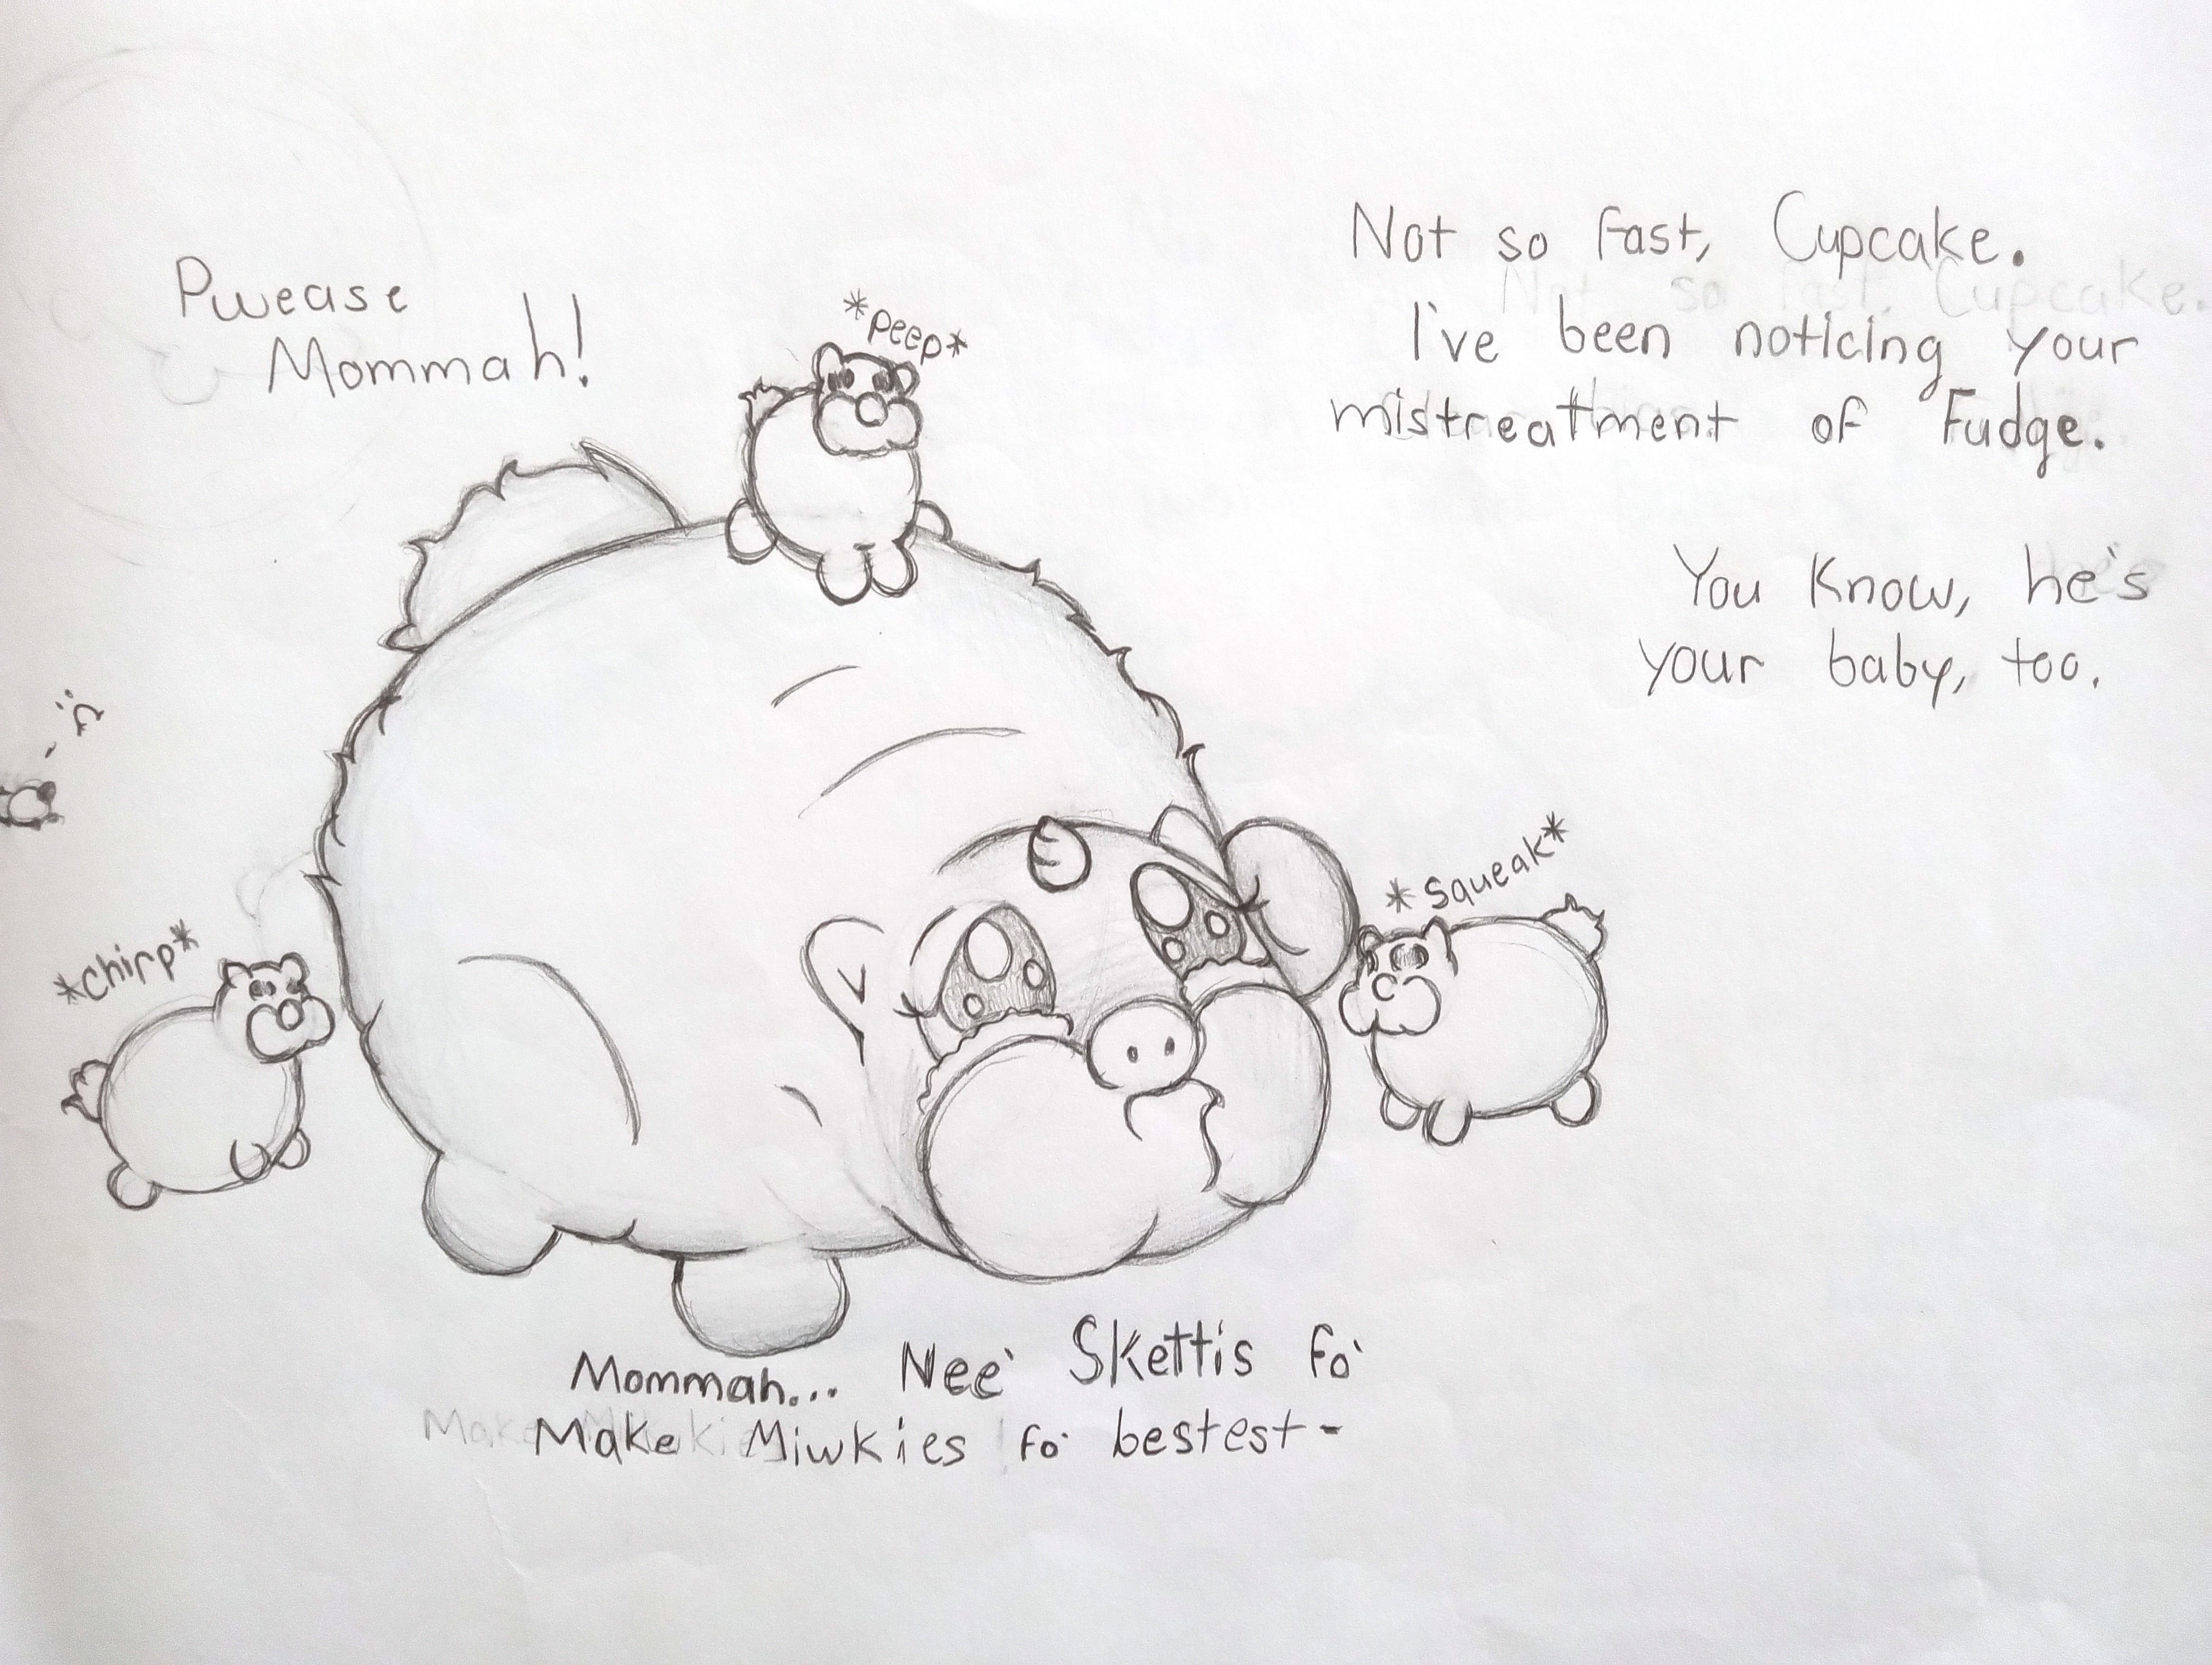 Pwease
Mommah!
*peep*
Not so fast, Cupcake.
I've been noticing your
mistreatment of Fudge.
You Know, he's
your baby, too.
*chirp*
*squeak*
Mommah... Nee' Skettis fo'
Make Miwkies fo' bestest-